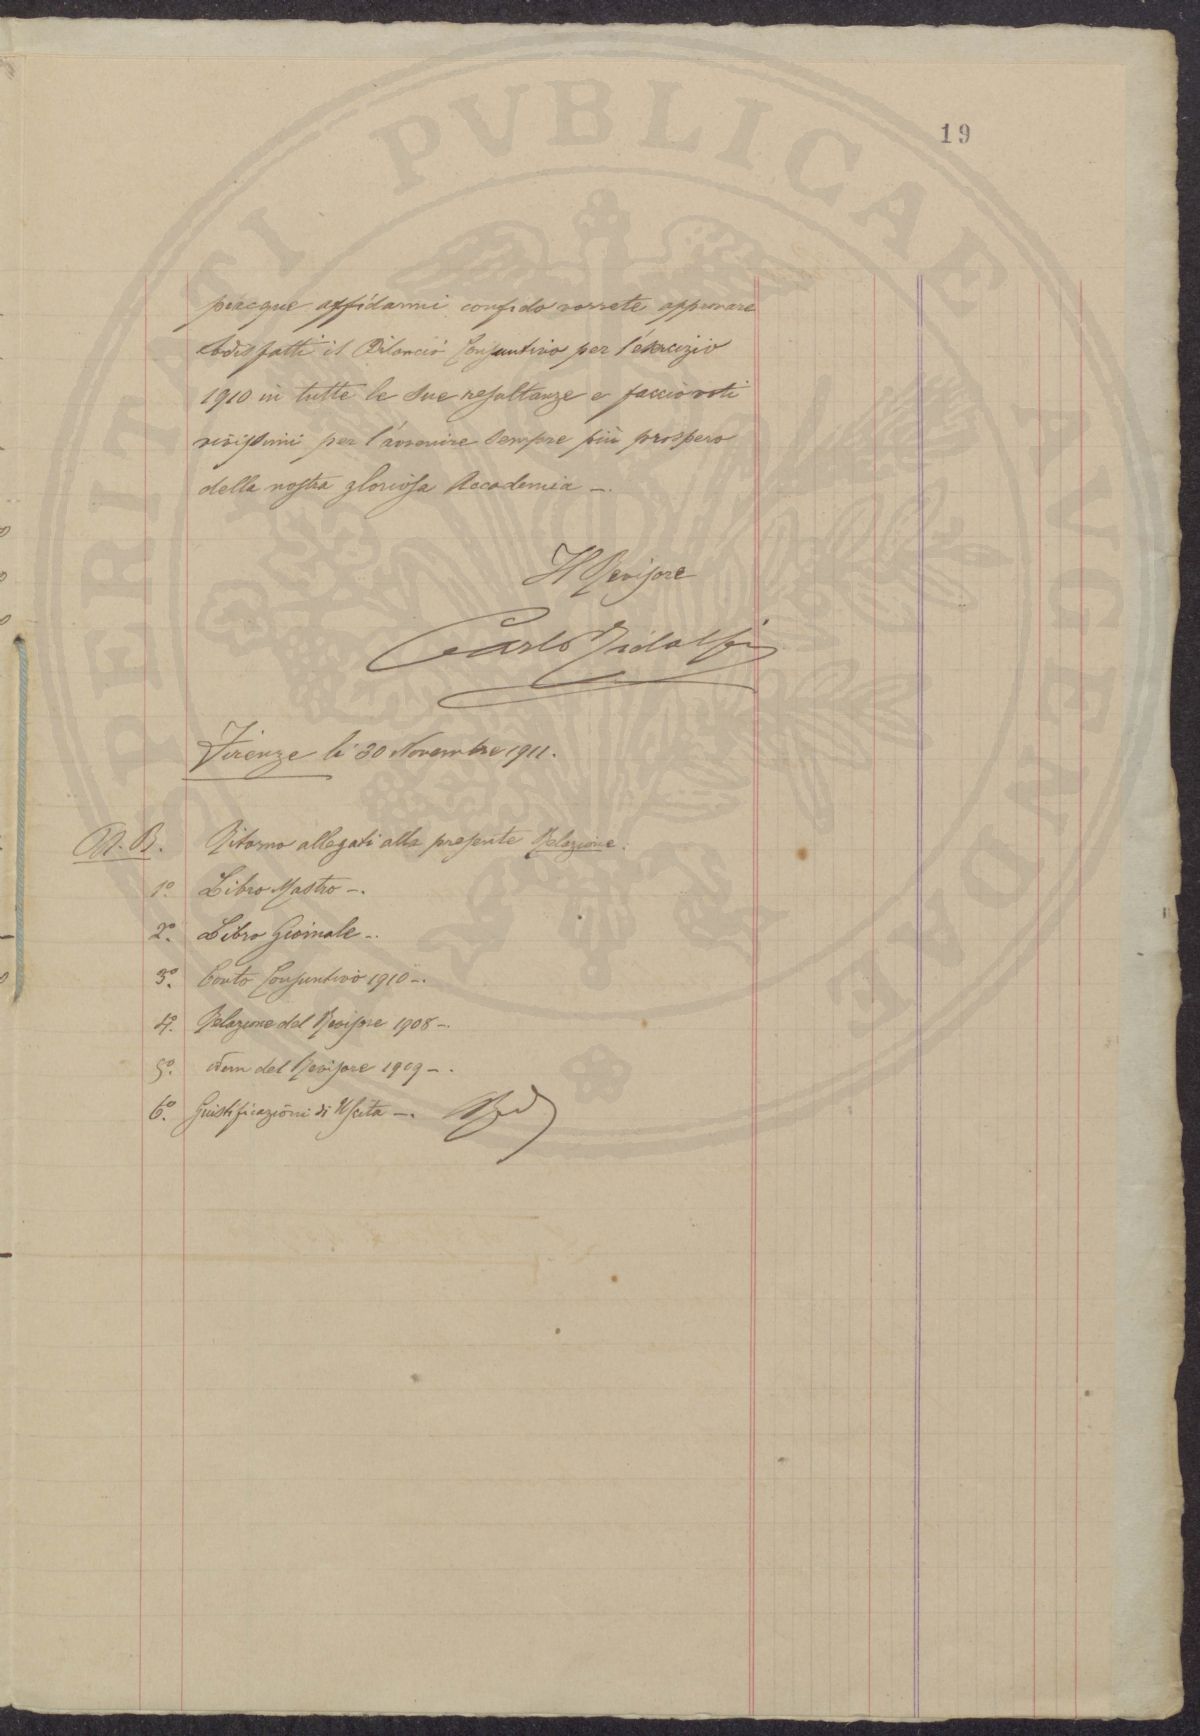 19
piacque affidarmi confido vorrete approvare
sodisfatti il Bilancio Consuntivo per l'esercizio
1910 in tutte le sue resultanze e faccio voti
vivissimi per l'avvenire sempre più prospero
della nostra gloriosa Accademia -.
Il Revisore
Carlo Ridolfi
Firenze li 30 Novembre 1911.
N. B. Ritorno allegati alla presente Relazione.
1º. Libro Mastro -.
2º. Libro Giornale -.
3º. Conto Consuntivo 1910 -.
4º. Relazione del Revisore 1908 -.
5º. idem del Revisore 1909 -.
6º. Giustificazioni di Uscita -.
PROSPERITATI PVBLICAE AVGENDAE